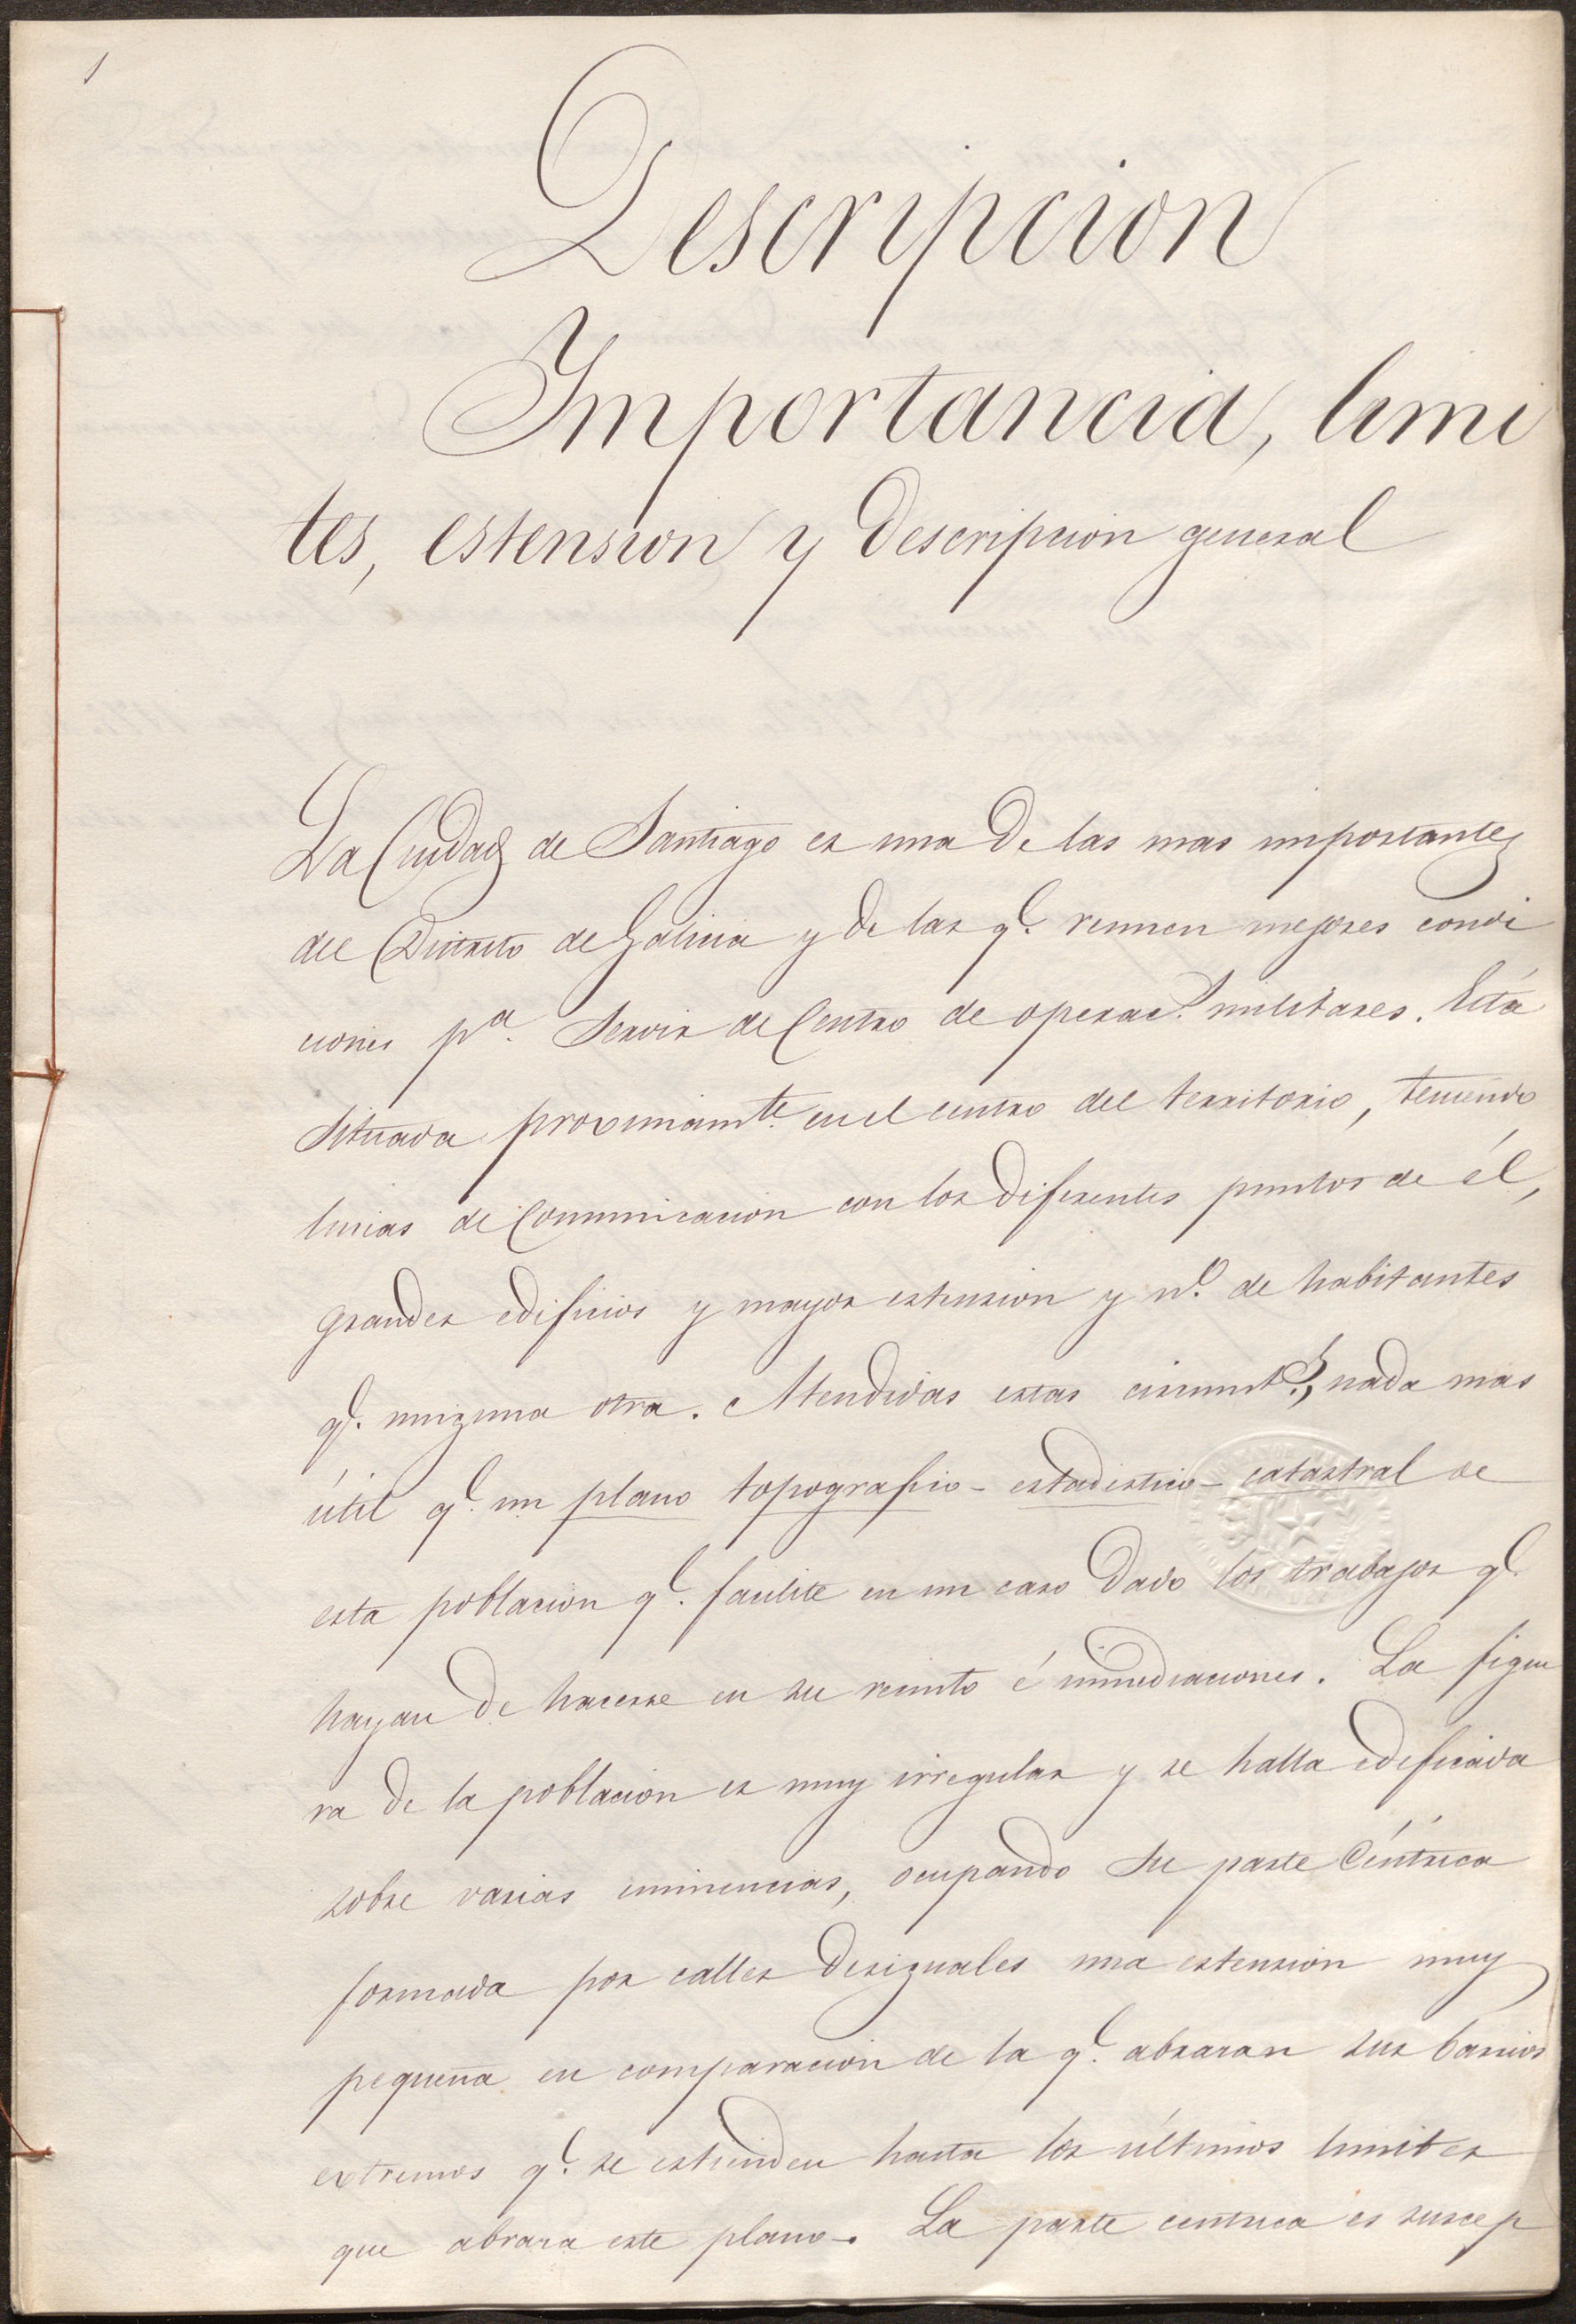 1
Descripcion
Importancia, limi
tes, estension y descripcion general
La Ciudad de Santiago es una de las mas importantes
del Distrito de Galicia y de las q.e reunen mejores condi
ciones p.a servir de Centro de operac.s militares. Está
situada proximam.te en el centro del territorio, teniendo
lineas de Comunicacion con los diferentes puntos de él,
grandes edificios y mayor estension y n.o de habitantes
q.e ninguna otra. Atendidas estas circunst.s, nada mas
útil q.e un plano topografico-estadistico-catastral de
esta poblacion q.e facilite en un caso dado los trabajos q.e
hayan de hacerse en su recinto é inmediaciones. La figu
ra de la poblacion es muy irregular y se halla edificada
sobre varias eminencias, ocupando su parte Céntrica
formada por calles desiguales una estension muy
pequeña en comparacion de la q.e abrazan sus barrios
extremos q.e se estienden hasta los últimos limites
que abraza este plano. La parte centrica es suscep